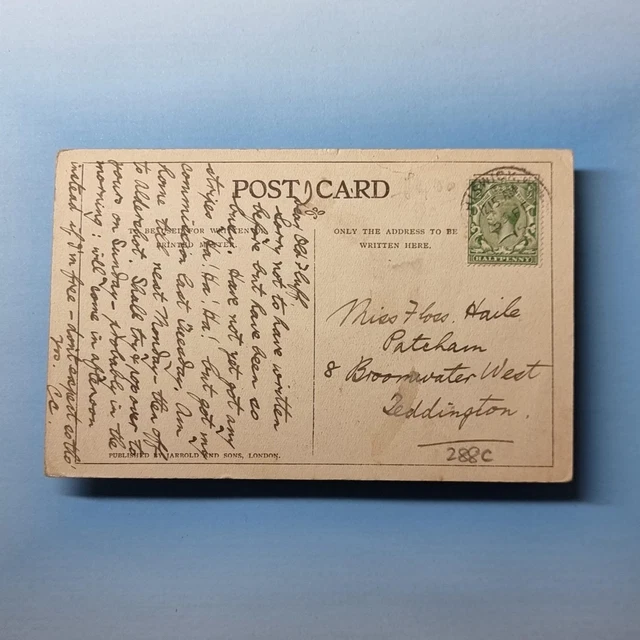 POST CARD
BE USED FOR WRITTEN OR
PRINTED MATTER.
ONLY THE ADDRESS TO BE
WRITTEN HERE.
HALFPENNY
Dear Old Fluff.
Sorry not to have written
before but have been so
busy. Have not yet got any
stripes Ha! Ha! Ha! but got my
commission last Tuesday. Am
home till next Monday - then off
to Aldershot. Shall try & pop over to
yours on Sunday - probable in the
morning: will come in afternoon
instead if I'm free - don't expect so tho'
Miss Floss. Haile
Patcham
8 Broomwater West
Teddington.
288C
PUBLISHED BY JARROLD AND SONS, LONDON.